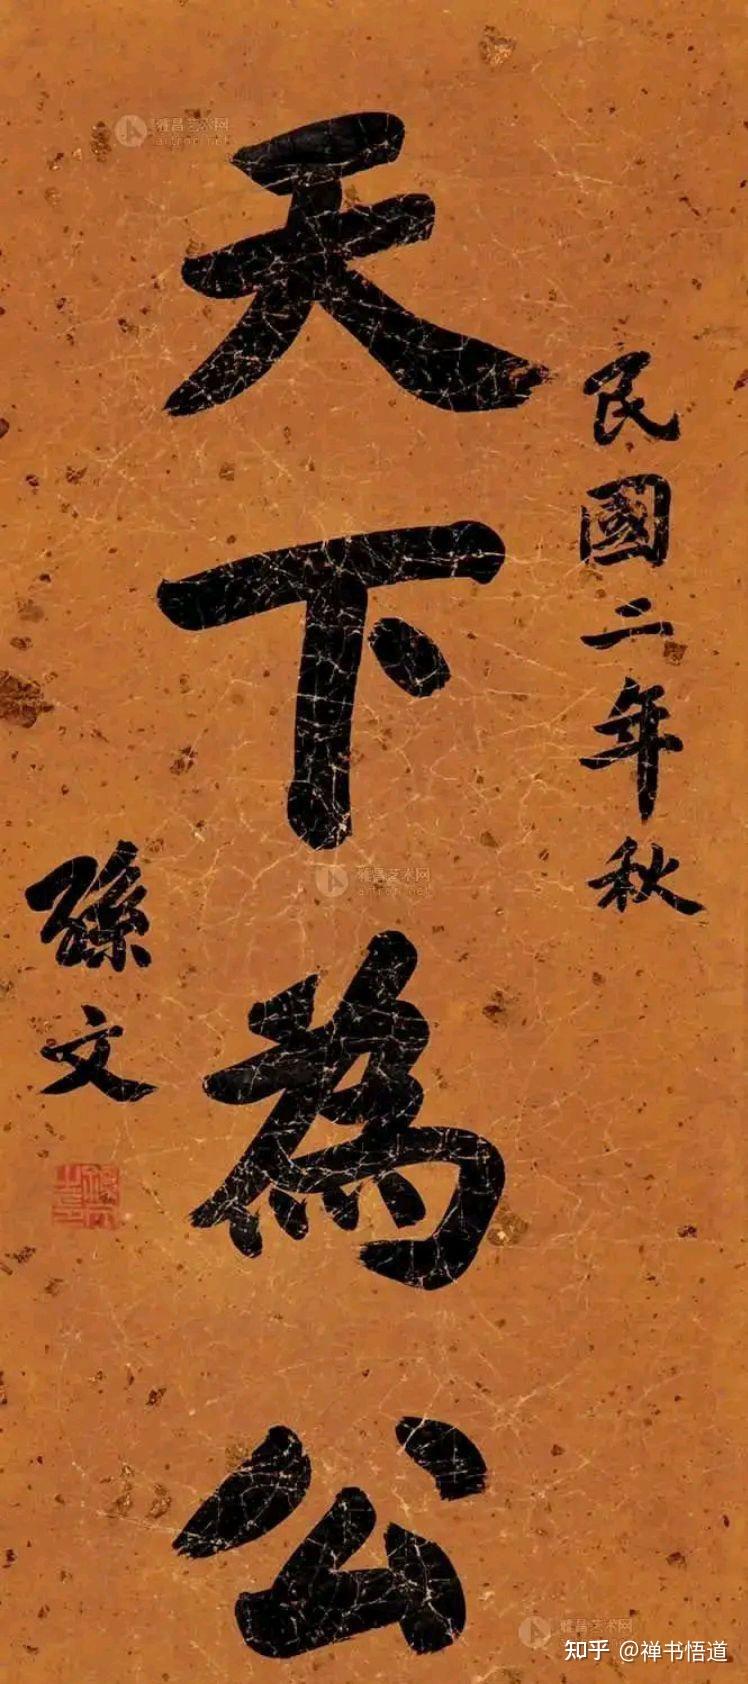 民國二年秋
天下為公
孫文
雅昌艺术网
artron.net
雅昌艺术网
artron.net
雅昌艺术网
知乎 @禅书悟道